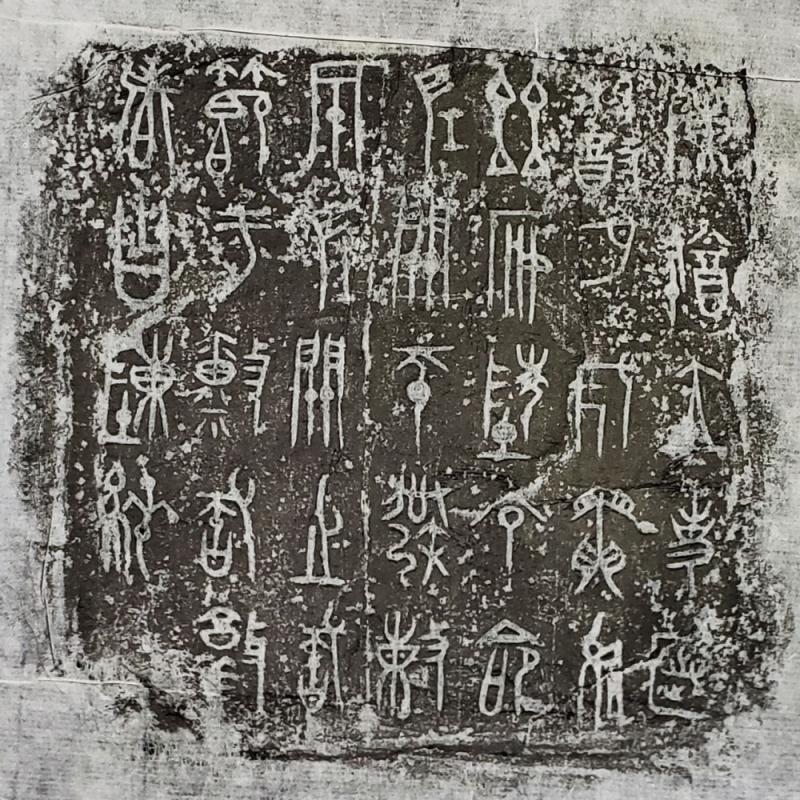 陳猶立事歲
𩫨月戊寅於
茲安陵亭命
左關師發敕
成左關之釜
節于廩釜敦
者曰陳純